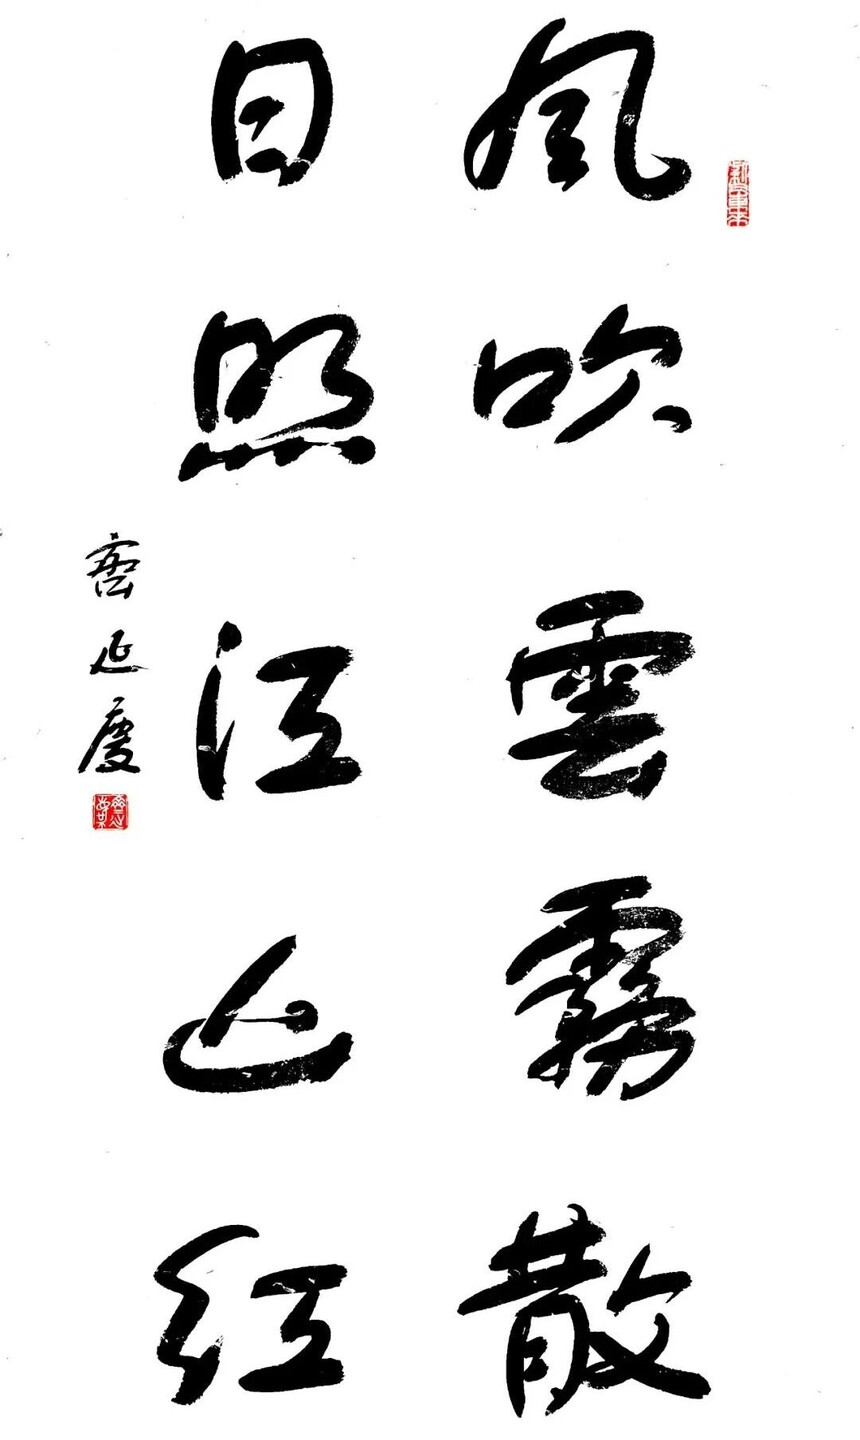 風吹雲霧散
日照江山紅
延慶